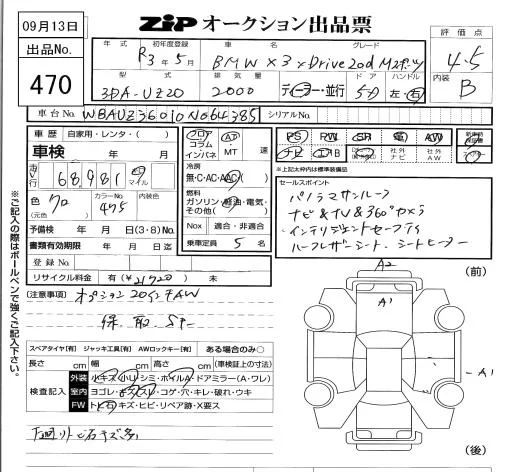 09月13日
ZIP オークション出品票
出品No.
470
年式 初年度登録 車名 グレード
R3年5月 BMW X3 xDrive20d Mスポーツ
評価点
4.5
内装
B
型式 排気量 ドア ハンドル
3DA-UZ20 2000 ディーラー・並行 5D 左・右
車台No. WBAUZ36010N064385 シリアルNo.
車歴 自家用・レンタ・( )
車検 年 月
走行 68,981 マイル
色 クロ カラーNo. 475 内装色
(元色)
予備検 年 月 日(3・8)
書類有効期限 年 月 日迄
登録No.
リサイクル料金 有( ) 未
フロア コラム インパネ AT ・ MT 速
冷房
無・C・AC・AAC( )
燃料
ガソリン・軽油・電気・その他( )
Nox 適合・非適合
乗車定員 5 名
PS PW SR AW
社外ナビ 社外AW
※上記太枠内は標準装備品
セールスポイント
パノラマサンルーフ
ナビ&TV&360°カメラ
インテリジェントセーフティ
ハーフレザーシート、シートヒーター
(注意事項) オプション20インチAW
保、取、SP-
スペアタイヤ[有] ジャッキ工具[有] AWロックキー[有] ある場合のみ○
長さ cm 幅 cm 高さ cm (車検証上の寸法)
検査記入
外装 小キズ・小U・シミ・ホイルA・ドアミラー(A・ワレ)
室内 ヨゴレ・キズ・スレ・コゲ・穴・キレ・破れ・ウキ
FW トビ石・キズ・ヒビ・リペア跡・X要ス
下回りトビ石キズ多
※ご記入の際はボールペンで強くご記入下さい。
A2
(前)
A1
A1
(後)